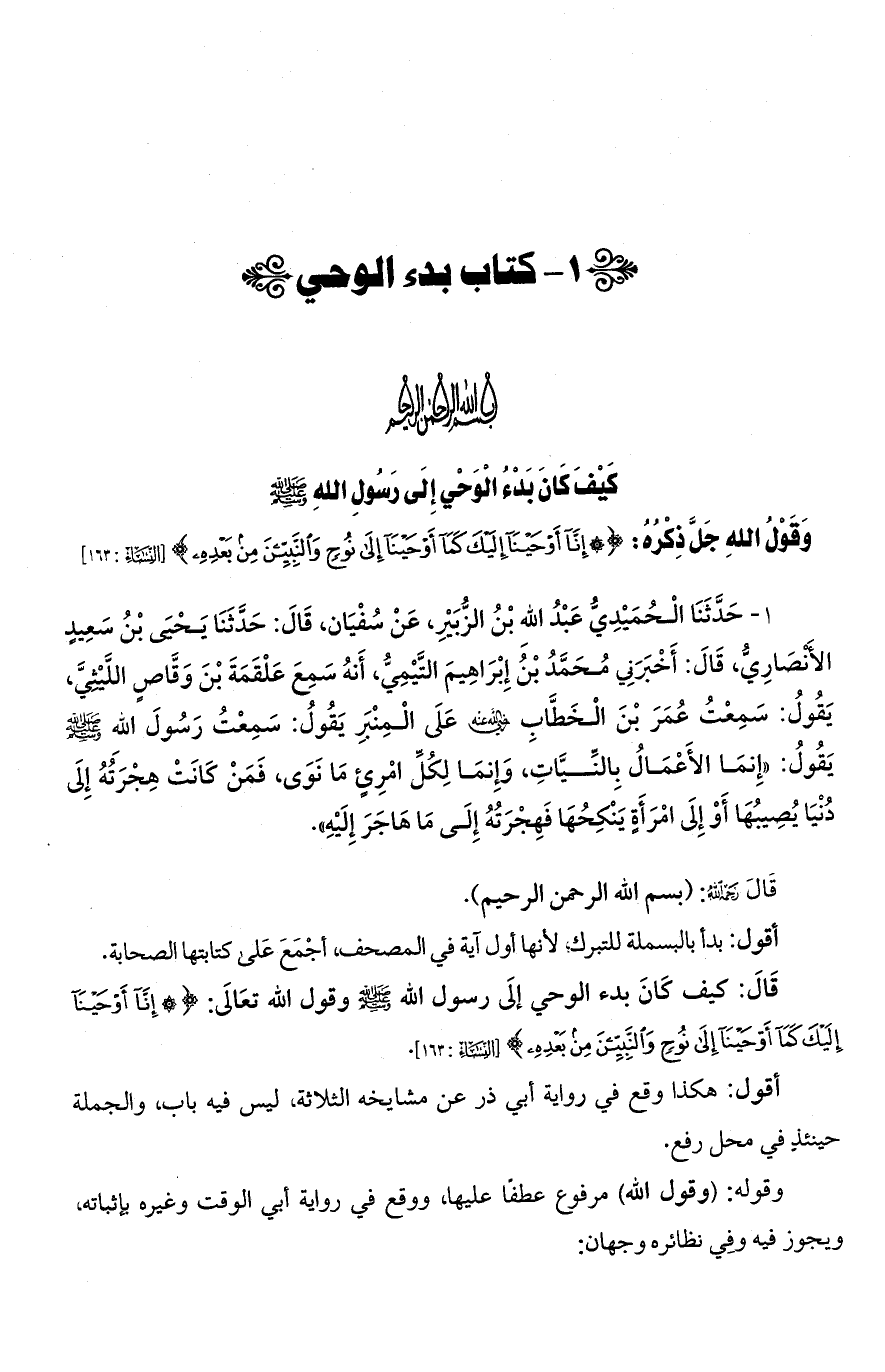 ١- كتاب بدء الوحي
بسم الله الرحمن الرحيم
كَيْفَ كَانَ بَدْءُ الْوَحْيِ إِلَى رَسُولِ اللهِ ﷺ
وَقَوْلُ اللهِ جَلَّ ذِكْرُهُ: ﴿۞ إِنَّآ أَوْحَيْنَآ إِلَيْكَ كَمَآ أَوْحَيْنَآ إِلَىٰ نُوحٍ وَٱلنَّبِيِّـۧنَ مِنۢ بَعْدِهِۦ﴾ [النساء: ١٦٣]
١- حَدَّثَنَا الْحُمَيْدِيُّ عَبْدُ الله بْنُ الزُّبَيْرِ، عَنْ سُفْيَان، قَالَ: حَدَّثَنَا يَحْيَى بْنُ سَعِيدٍ
الأَنْصَارِيُّ، قَالَ: أَخْبَرَنِي مُحَمَّدُ بْنُ إِبْرَاهِيمَ التَّيْمِيُّ، أَنَّهُ سَمِعَ عَلْقَمَةَ بْنَ وَقَّاصٍ اللَّيْثِيَّ،
يَقُولُ: سَمِعْتُ عُمَرَ بْنَ الْخَطَّابِ رضي الله عنه عَلَى الْمِنْبَرِ يَقُولُ: سَمِعْتُ رَسُولَ الله ﷺ
يَقُولُ: «إِنمَا الأَعْمَالُ بِالنِّـيَّاتِ، وَإِنمَا لِكُلِّ امْرِئٍ مَا نَوَى، فَمَنْ كَانَتْ هِجْرَتُهُ إِلَى
دُنْيَا يُصِيبُهَا أَوْ إِلَى امْرَأَةٍ يَنْكِحُهَا فَهِجْرَتُهُ إِلَى مَا هَاجَرَ إِلَيْهِ».
قَالَ رحمه الله: (بسم الله الرحمن الرحيم).
أقول: بدأ بالبسملة للتبرك؛ لأنها أول آية في المصحف، أجْمَعَ عَلىٰ كتابتها الصحابة.
قَالَ: كيف كَانَ بدء الوحي إلَى رسول الله ﷺ وقول الله تعَالَى: ﴿۞ إِنَّآ أَوْحَيْنَآ
إِلَيْكَ كَمَآ أَوْحَيْنَآ إِلَىٰ نُوحٍ وَٱلنَّبِيِّـۧنَ مِنۢ بَعْدِهِۦ﴾ [النساء: ١٦٣].
أقول: هكذا وقع في رواية أبي ذر عن مشايخه الثلاثة، ليس فيه باب، والجملة
حينئذٍ في محل رفع.
وقوله: (وقول الله) مرفوع عطفًا عليها، ووقع في رواية أبي الوقت وغيره بإثباته،
ويجوز فيه وفِي نظائره وجهان: